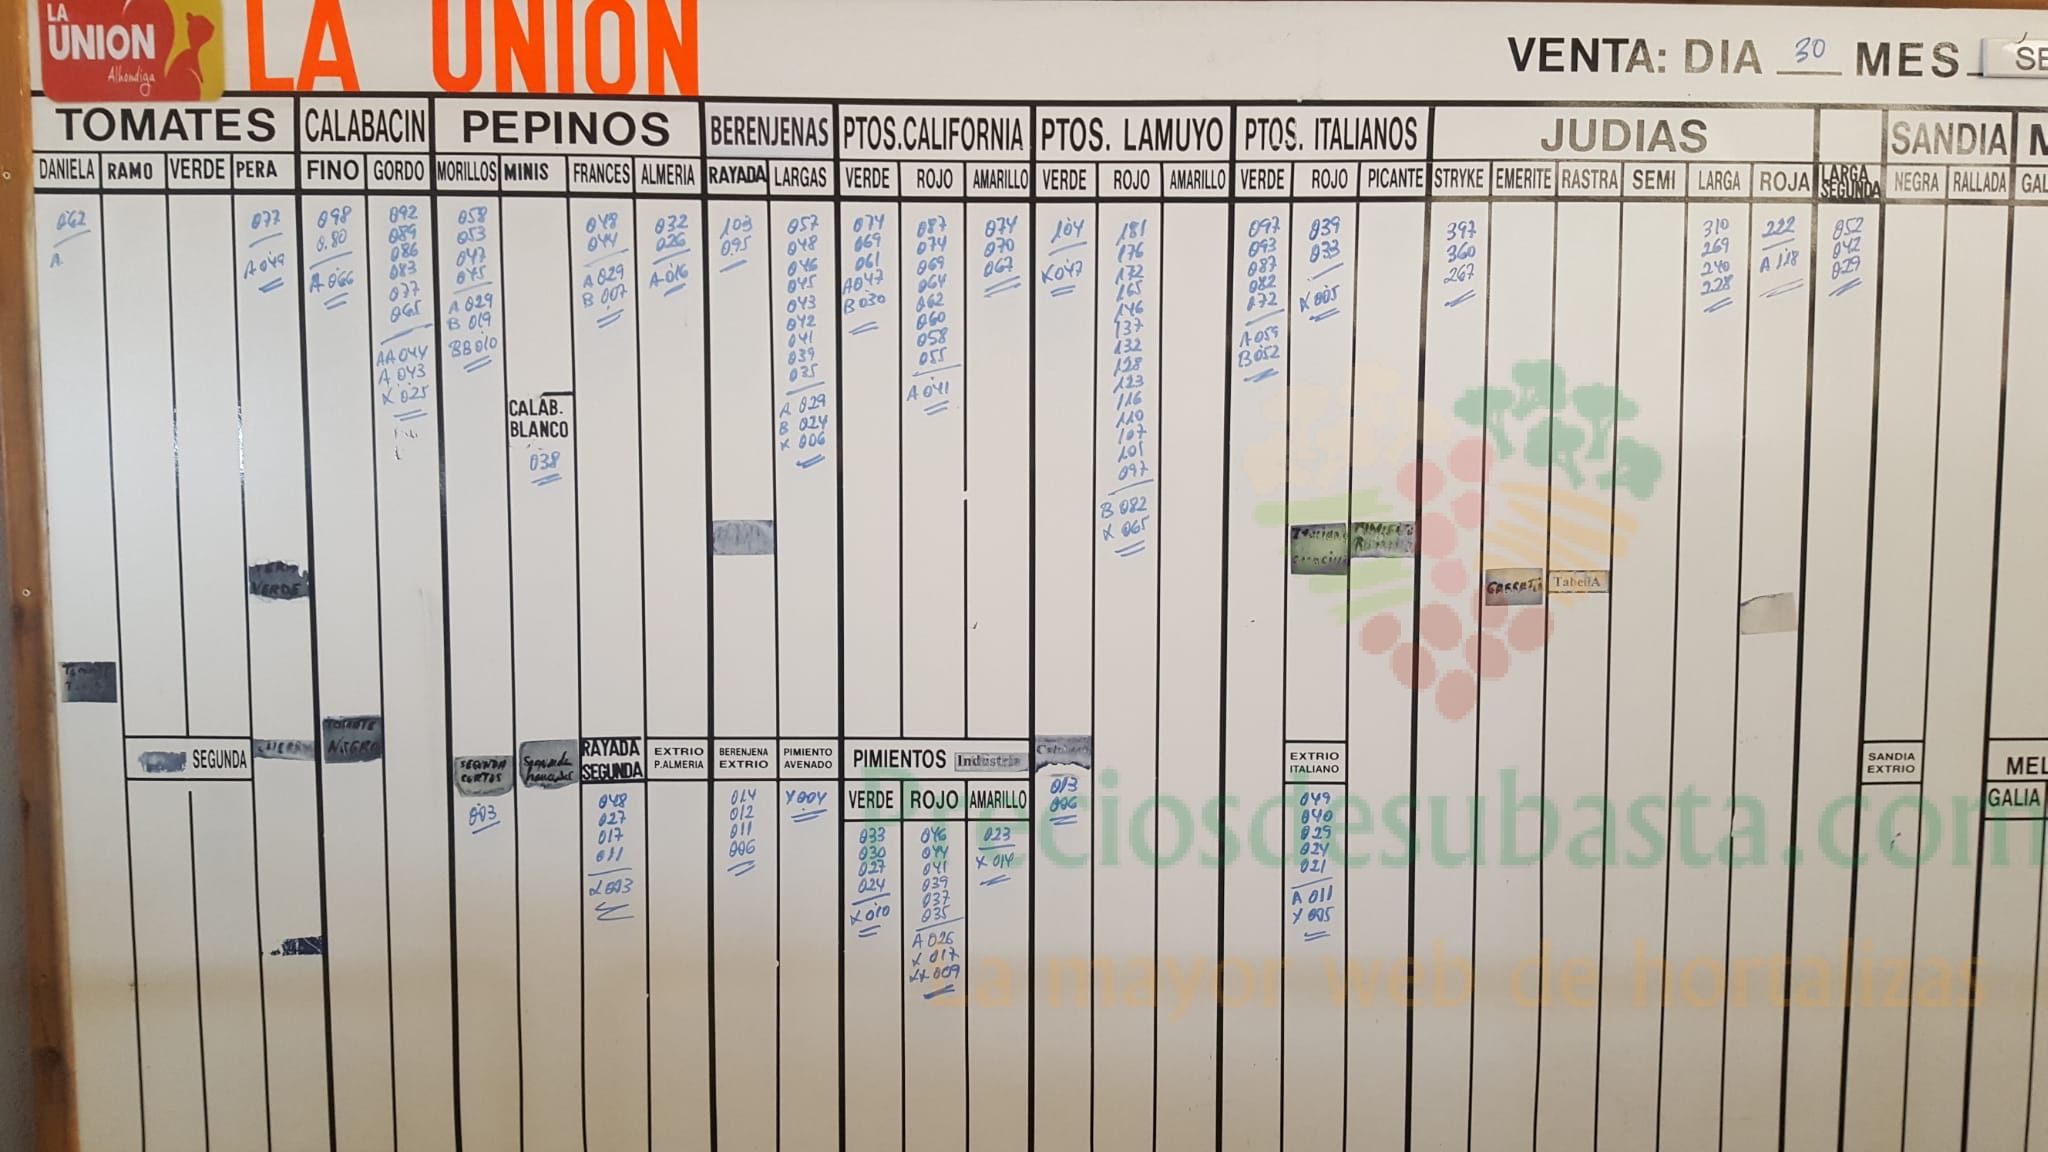 LA
UNION
Alhondiga
LA UNION
VENTA: DIA 30 MES SE
TOMATES CALABACIN PEPINOS BERENJENAS PTOS.CALIFORNIA PTOS. LAMUYO PTOS. ITALIANOS JUDIAS SANDIA M
DANIELA RAMO VERDE PERA FINO GORDO MORILLOS MINIS FRANCES ALMERIA RAYADA LARGAS VERDE ROJO AMARILLO VERDE ROJO AMARILLO VERDE ROJO PICANTE STRYKE EMERITE RASTRA SEMI LARGA ROJA LARGA SEGUNDA NEGRA RALLADA GAL
062
A
077
A 049
098
0.80
A 066
092
089
086
083
077
065
AA 044
A 043
X 025
058
053
047
045
A 029
B 019
BB 010
CALAB.
BLANCO
038
048
044
A 029
B 007
032
026
A 016
103
095
057
048
046
045
043
042
041
039
035
A 029
B 024
X 006
074
069
061
A 047
B 030
087
074
069
064
062
060
058
055
A 041
074
070
067
104
X 047
181
176
172
165
146
137
132
128
123
116
110
107
101
097
B 082
X 065
097
093
087
082
072
A 059
B 052
039
033
X 005
397
360
267
310
269
240
228
222
A 118
052
042
029
VERDE
GARRAFA
TabellA
SEGUNDA
TOMATE
NEGRO
SEGUNDA
CORTOS
003
Segunda
RAYADA
SEGUNDA
048
027
017
011
X 003
EXTRIO
P.ALMERIA
BERENJENA
EXTRIO
014
012
011
006
PIMIENTO
AVENADO
X 004
PIMIENTOS Industria
VERDE ROJO AMARILLO
033
030
027
024
X 010
046
044
041
039
037
035
A 026
X 017
XX 009
023
X 014
013
006
EXTRIO
ITALIANO
049
040
029
024
021
A 011
X 005
SANDIA
EXTRIO
MEL
GALIA
Preciosdesubasta.com
La mayor web de hortalizas